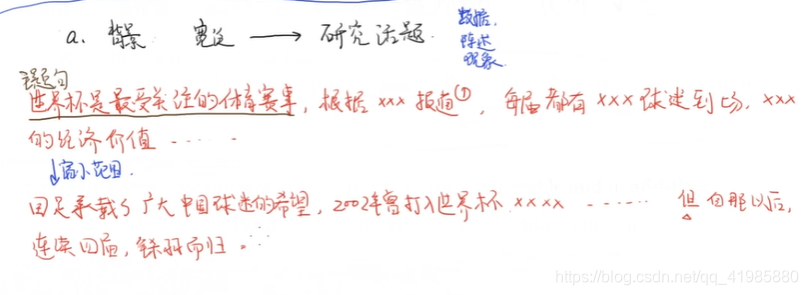 a. 背景 宽泛 → 研究话题.
数据.
陈述
现象.
主题句
世界杯是最受关注的体育赛事, 根据 xxx 报道①, 每届都有 xxx 球迷到场, xxx
的经济价值 ……
↓缩小范围.
国足承载了广大中国球迷的希望, 2002年曾打入世界杯 xxxx …… 但自那以后,
连续四届, 铩羽而归.
https://blog.csdn.net/qq_41985880